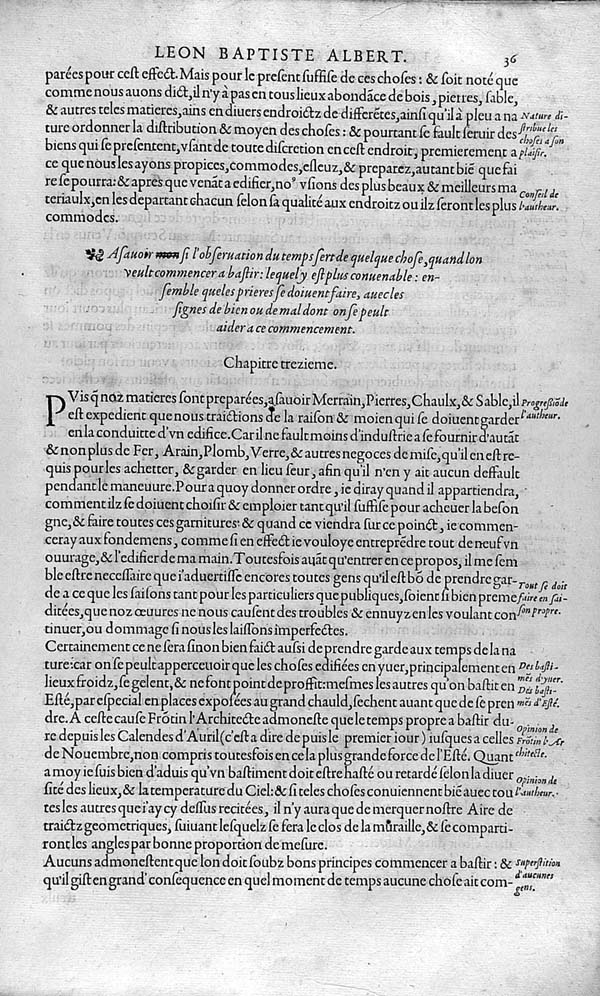 LEON BAPTISTE ALBERT.
36
parées pour cest effect. Mais pour le present suffise de ces choses: & soit noté que
comme nous auons dict, il n'y à pas en tous lieux abondāce de bois, pierres, sable,
& autres teles matieres, ains en diuers endroictz de differētes, ainsi qu'il à pleu a na
Nature di-
ture ordonner la distribution & moyen des choses: & pourtant se fault seruir des
stribue les
biens qui se presentent, vsant de toute discretion en cest endroit, premierement a
choses a son
plaisir.
ce que nous les ayons propices, commodes, esleuz, & preparez, autant biē que fai
re se pourra: & apres que venāt a edifier, no⁹ vsions des plus beaux & meilleurs ma
Conseil de
teriaulx, en les departant chacun selon sa qualité aux endroitz ou ilz seront les plus
l'autheur.
commodes.
Asauoir mon si l'obseruation du temps sert de quelque chose, quand lon
veult commencer a bastir: lequel y est plus conuenable: en-
semble queles prieres se doiuent faire, auec les
signes de bien ou de mal dont on se peult
aider a ce commencement.
Chapitre trezieme.
PVis q̄ noz matieres sont preparées, asauoir Merrain, Pierres, Chaulx, & Sable, il
Progressiō de
est expedient que nous traictions de la raison & moien qui se doiuent garder
l'autheur.
en la conduitte d'vn edifice. Car il ne fault moins d'industrie a se fournir d'autāt
& non plus de Fer, Arain, Plomb, Verre, & autres negoces de mise, qu'il en est re-
quis pour les achetter, & garder en lieu seur, afin qu'il n'en y ait aucun deffault
pendant le manœuure. Pour a quoy donner ordre, ie diray quand il appartiendra,
comment ilz se doiuent choisir & emploier tant qu'il suffise pour acheuer la beson
gne, & faire toutes ces garnitures: & quand ce viendra sur ce poinct, ie commen-
ceray aux fondemens, comme si en effect ie vouloye entreprēdre tout de neuf vn
ouurage, & l'edifier de ma main. Toutesfois auāt qu'entrer en ce propos, il me sem
ble estre necessaire que i'aduertisse encores toutes gens qu'il est bō de prendre gar-
Tout se doit
de a ce que les saisons tant pour les particuliers que publiques, soient si bien preme
faire en sai-
ditées, que noz œuures ne nous causent des troubles & ennuyz en les voulant con
son propre.
tinuer, ou dommage si nous les laissons imperfectes.
Certainement ce ne sera sinon bien faict aussi de prendre garde aux temps de la na
ture: car on se peult apperceuoir que les choses edifiées en yuer, principalement en
Des basti-
lieux froidz, se gelent, & ne font point de proffit: mesmes les autres qu'on bastit en
mēs d'yuer.
Des basti-
Esté, par especial en places exposées au grand chauld, sechent auant que de se pren
mēs d'Esté.
dre. A ceste cause Frōtin l'Architecte admoneste que le temps propre a bastir du-
Opinion de
re depuis les Calendes d'Auril (c'est a dire depuis le premier iour) iusques a celles
Frōtin l'Ar
de Nouembre, non compris toutesfois en cela plus grande force de l'Esté. Quant
chitecte.
a moy ie suis bien d'aduis qu'vn bastiment doit estre hasté ou retardé selon la diuer
Opinion de
sité des lieux, & la temperature du Ciel: & si teles choses conuiennent biē auec tou
l'autheur.
tes les autres que i'ay cy dessus recitées, il n'y aura que de merquer nostre Aire de
traictz geometriques, suiuant lesquelz se fera le clos de la muraille, & se comparti-
ront les angles par bonne proportion de mesure.
Aucuns admonestent que lon doit soubz bons principes commencer a bastir: &
Superstition
qu'il gist en grand' consequence en quel moment de temps aucune chose ait com-
d'aucunes
gens.